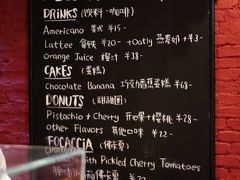 DRiNKS (饮料·咖啡)
Americano 美式 ¥15-
Lattee 拿铁 ¥20- +Oatly 燕麦奶+¥3-
Orange Juice 橙汁 ¥38-
CAKEs (蛋糕)
Chocolate Banana 巧克力香蕉蛋糕 ¥68-
DONUTS (甜甜圈)
Pistachio + Cherry 开心果+樱桃 ¥28-
other Flavors 其他口味 ¥22-
FOCACCiA (佛卡夏)
with Pickled Cherry Tomatoes
佛卡夏